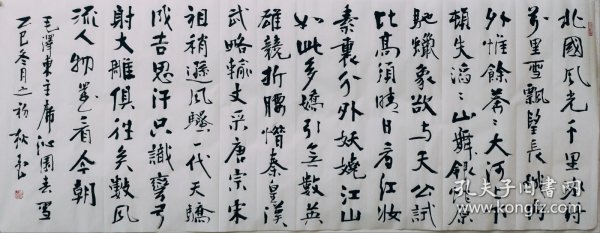 北國風光千里冰封
萬里雪飄望長城內
外惟餘莽莽大河上下
頓失滔滔山舞銀蛇原
馳蠟象欲与天公試
比高須晴日看紅妝
素裹分外妖嬈江山
如此多嬌引無數英
雄競折腰惜秦皇漢
武略輸文采唐宗宋
祖稍遜風騷一代天驕
成吉思汗只識彎弓
射大雕俱往矣數風
流人物還看今朝
毛澤東主席沁園春雪
乙巳冬月之初
孔夫子旧书网
www.kongfz.com